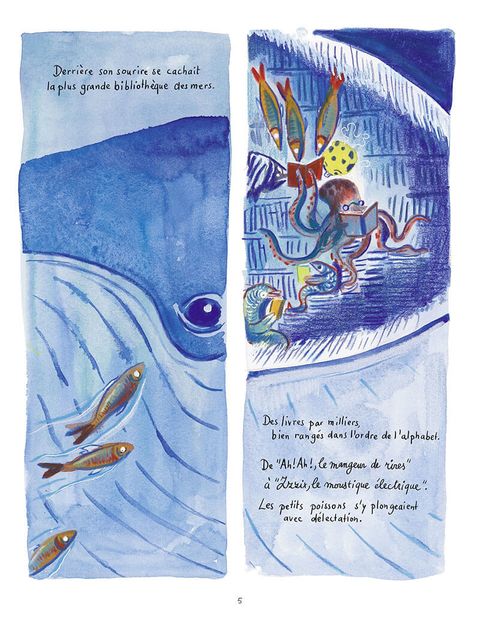 Derrière son sourire se cachait
la plus grande bibliothèque des mers.
Des livres par milliers,
bien rangés dans l'ordre de l'alphabet.
De "Ah! Ah!, le mangeur de rires"
à "Zzziz, le moustique électrique".
Les petits poissons s'y plongeaient
avec délectation.
5